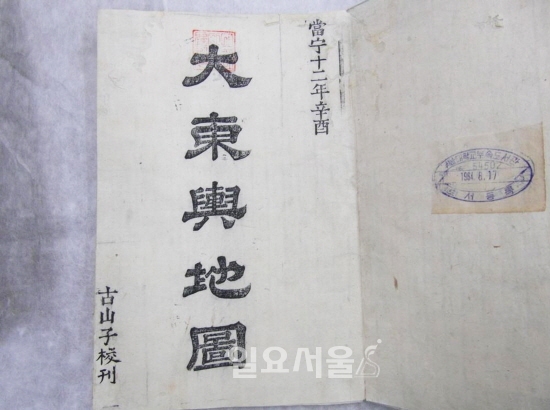 當宁十二年辛酉
大東輿地圖
古山子校刊
1984.6.17
일요서울